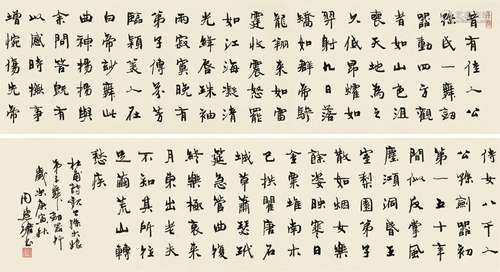 昔有佳人公
孫氏一舞劍
器動四方觀
者如山色沮
喪天地為之
久低昂㸌如
羿射九日落
矯如群帝驂
龍翔來如雷
霆收震怒罷
如江海凝清
光絳唇珠袖
兩寂寞晚有
弟子傳芬芳
臨潁美人在
白帝妙舞此
曲神揚揚與
余問答既有
以感時撫事
增惋傷先帝
侍女八千人
公孫劍器初
第一五十年
間似反掌風
塵澒洞昏王
室梨園弟子
散如煙女樂
餘姿映寒日
金粟堆南木
已拱瞿唐石
城草蕭瑟玳
筵急管曲復
終樂極哀來
月東出老夫
不知其所往
足繭荒山轉
愁疾
杜甫詩觀公孫大娘
弟子舞劍器行
歲次庚寅秋
周慧珺書